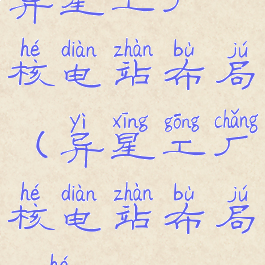 异星工厂
hé diàn zhàn bù jú
核电站布局
yì xīng gōng chǎng
(异星工厂
hé diàn zhàn bù jú
核电站布局
hé